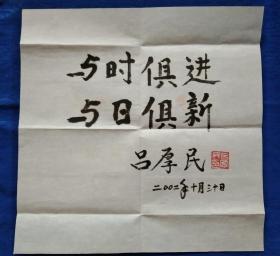 与时俱进
与日俱新
吕厚民
二00二年十月三十日